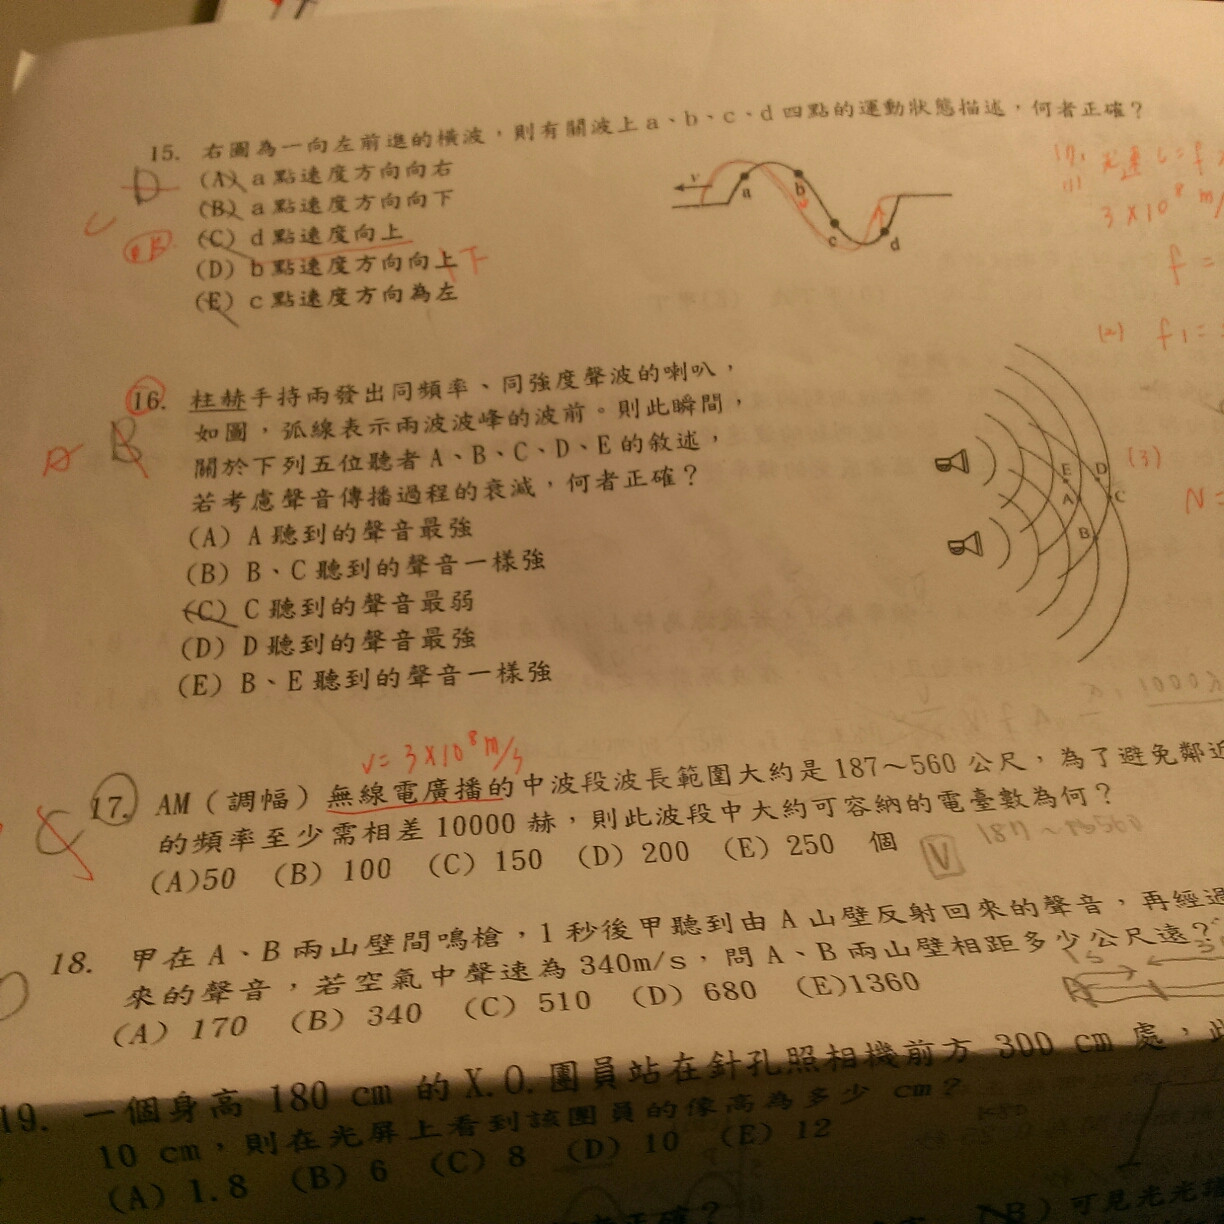 15. 右圖為一向左前進的橫波，則有關波上a、b、c、d四點的運動狀態描述，何者正確？
D
(A) a點速度方向向右
(B) a點速度方向向下
(C) d點速度向上
(D) b點速度方向向上 下
(E) c點速度方向為左
v
a
b
c
d
17.
(1)
3×10⁸ m/
f =
(2) f1 =
(3)
N =
16. 柱赫手持兩發出同頻率、同強度聲波的喇叭，
B
如圖，弧線表示兩波波峰的波前。則此瞬間，
關於下列五位聽者A、B、C、D、E的敘述，
若考慮聲音傳播過程的衰減，何者正確？
(A) A聽到的聲音最強
(B) B、C聽到的聲音一樣強
(C) C聽到的聲音最弱
(D) D聽到的聲音最強
(E) B、E聽到的聲音一樣強
E
D
A
C
B
v = 3×10⁸ m/s
C
17. AM（調幅）無線電廣播的中波段波長範圍大約是187～560公尺，為了避免鄰近
的頻率至少需相差10000赫，則此波段中大約可容納的電臺數為何？
(A)50 (B) 100 (C) 150 (D) 200 (E) 250 個
18. 甲在A、B兩山壁間鳴槍，1秒後甲聽到由A山壁反射回來的聲音，再經過
來的聲音，若空氣中聲速為340m/s，問A、B兩山壁相距多少公尺遠？
(A) 170 (B) 340 (C) 510 (D) 680 (E)1360
19. 一個身高 180 cm 的X.O.團員站在針孔照相機前方 300 cm 處，此
10 cm，則在光屏上看到該團員的像高為多少 cm？
(A) 1.8 (B) 6 (C) 8 (D) 10 (E) 12
者正確？
(B) 可見光光